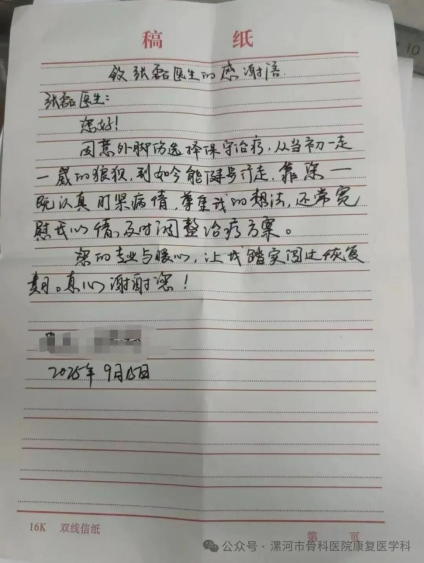 稿 纸
致张磊医生的感谢语
张磊医生:
您好!
因意外脚伤选择保守治疗,从当初一走
一崴的狼狈,到如今能健步行走,靠您一
既认真盯梁病情,尊重我的想法,还常宽
慰我心情,及时调整治疗方案。
您的专业与暖心,让我踏实闯过恢复
期。真心谢谢您!
2025年9月15日
16K 双线信纸
第 页
公众号·漯河市骨科医院康复医学科